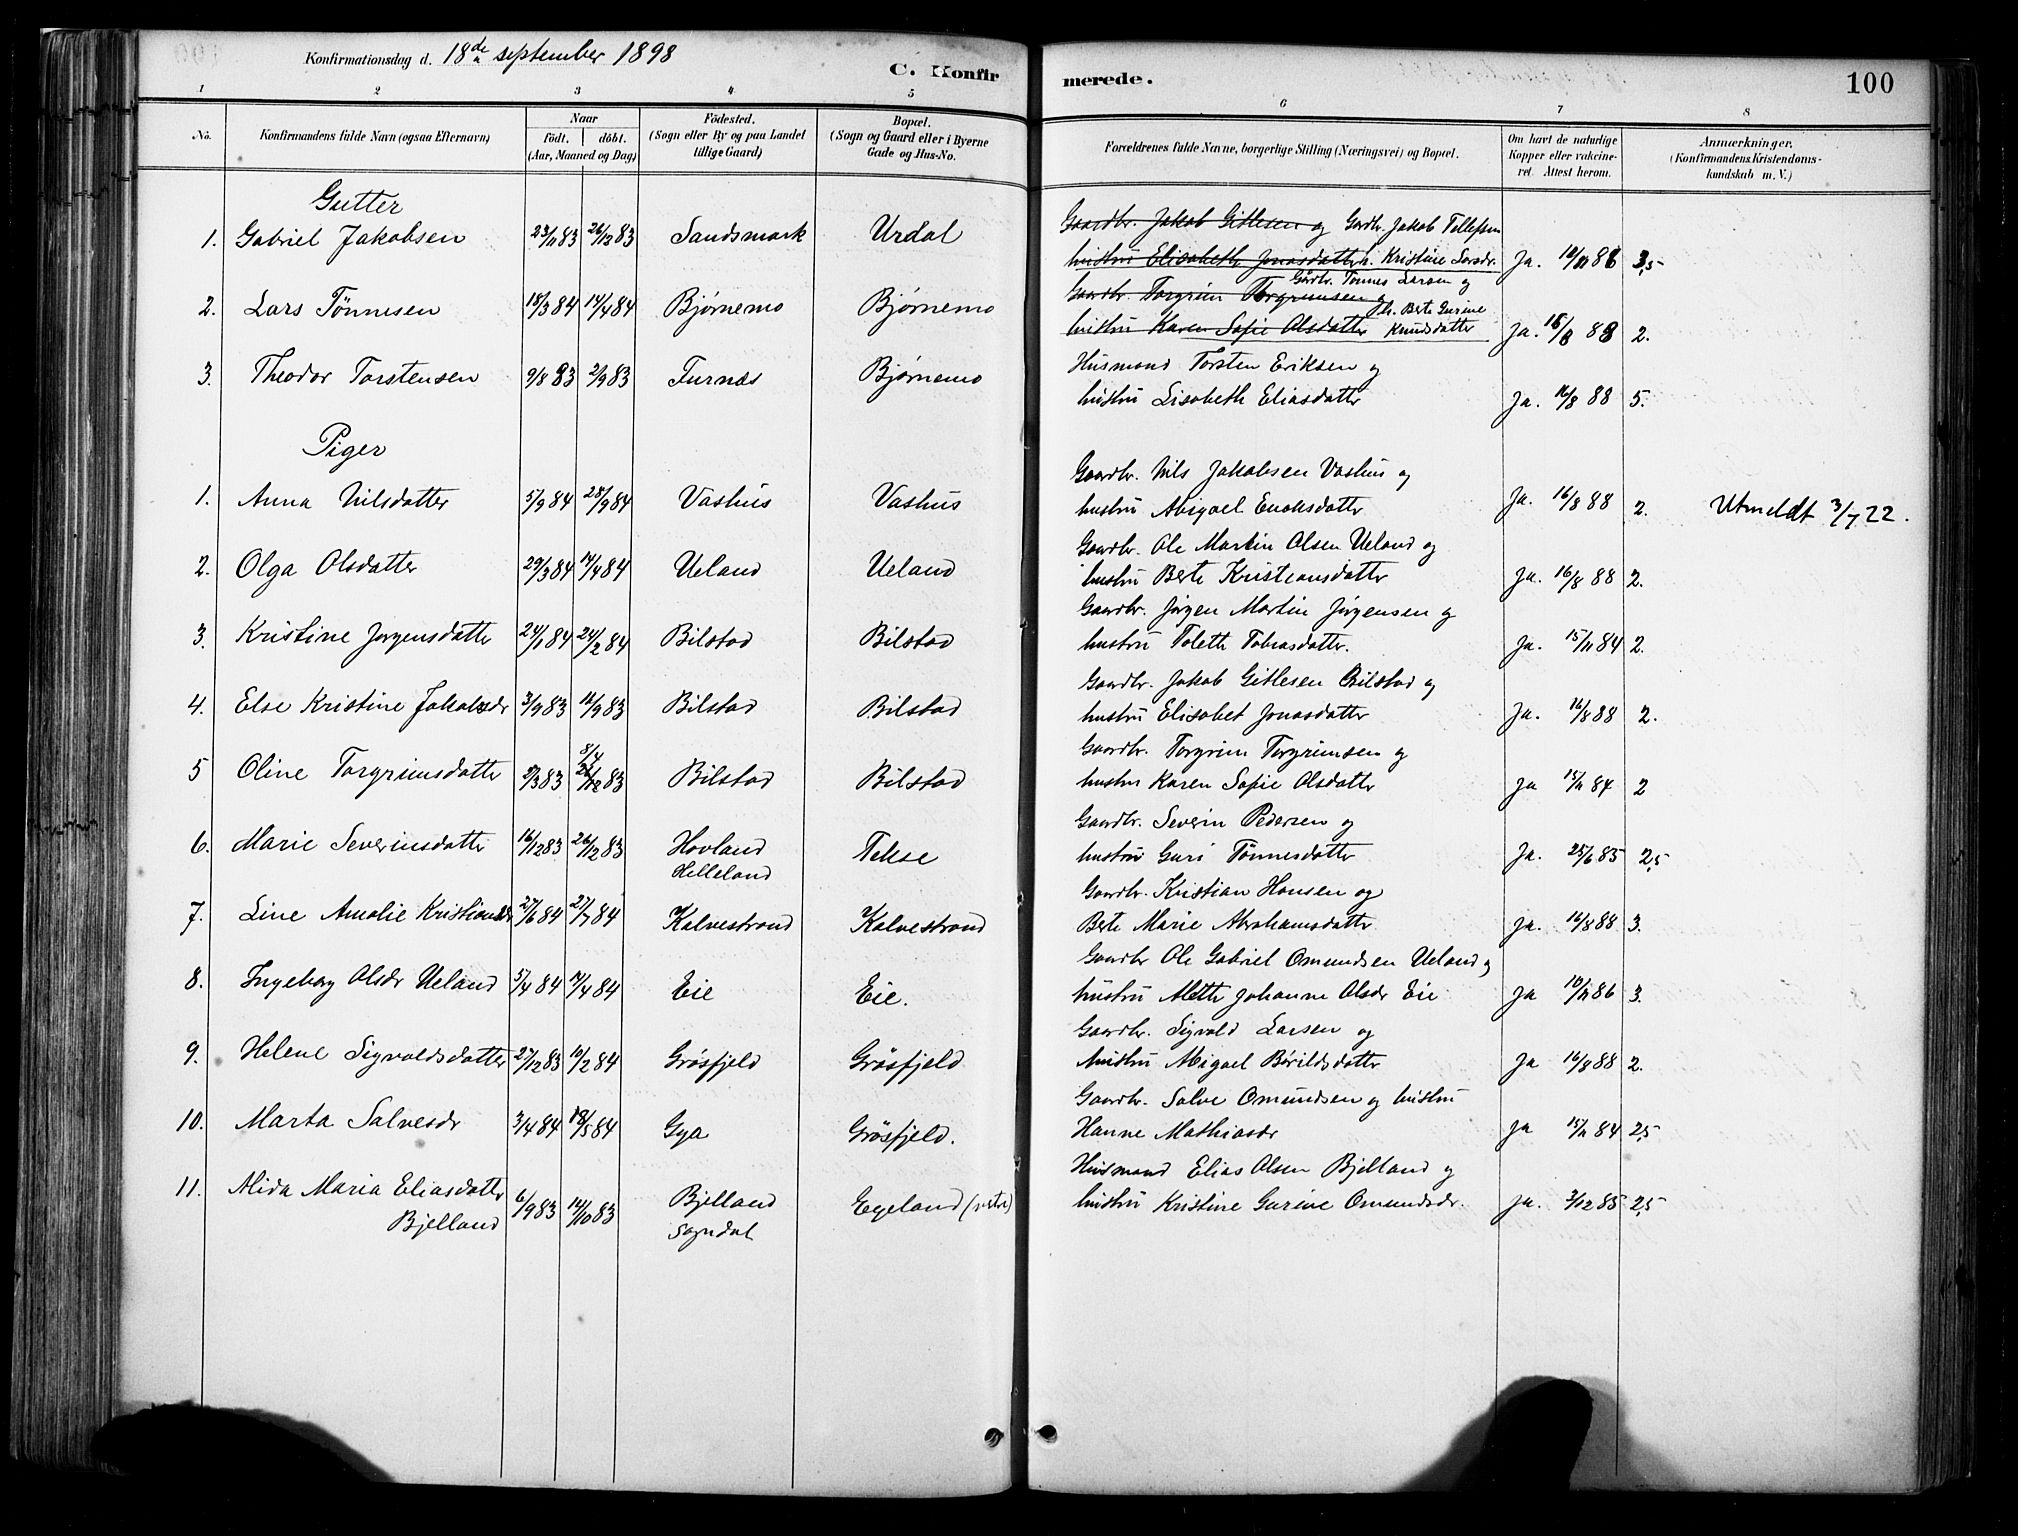 Konfirmationsdag d. 18de september 1898
C. Konfirmerede.
100
1 2 3 4 5 6 7 8
No. Konfirmandens fulde Navn (ogsaa Efternavn) Naar födt. döbt. (Aar, Maaned og Dag) Födested. (Sogn eller By og paa Landet tillige Gaard) Bopæl. (Sogn og Gaard eller i Byerne Gade og Hus-No. Forældrenes fulde Navne, borgerlige Stilling (Næringsvei) og Bopæl. Om havt de naturlige Kopper eller vakcineret. Attest herom. Anmærkninger. (Konfirmandens Kristendomskundskab m. V.)
Gutter
Gaardbr. Jakob Gitlesen og Gardbr. Jakob Tollefsen
1. Gabriel Jakobsen 23/11 83 26/12 83 Sandsmark Urdal hustru Elisabeth Jonasdatter h. Kristine Larsdr. Ja. 10/11 86 3,5
Gaardbr. Torgrim Torgrimsen og Gårdbr. Tönnes Larsen og
2. Lars Tönnesen 18/3 84 14/4 84 Bjørnemo Bjørnemo hustru Karen Sofie Olsdatter h. Berte Gurine Knudsdatter Ja. 16/8 88 2.
Husmand Torsten Eriksen og
3. Theodor Torstensen 9/8 83 2/9 83 Furnæs Bjørnemo hustru Lisabeth Eliasdatter Ja. 16/8 88 5.
Piger
Gaardbr. Nils Jakobsen Vashus og
1. Anna Nilsdatter 5/9 84 28/9 84 Vashus Vashus hustru Abigael Enoksdatter Ja. 16/8 88 2. Utmeldt 3/7 22.
Gaardbr. Ole Martin Olsen Ueland og
2. Olga Olsdatter 29/3 84 14/4 84 Ueland Ueland hustru Berte Kristiansdatter Ja. 16/8 88 2.
Gaardbr. Jørgen Martin Jørgensen og
3. Kristine Jørgensdatter 24/1 84 24/2 84 Bilstad Bilstad hustru Tolette Tobiasdatter. Ja. 15/11 84 2.
Gaardbr. Jakob Gitlesen Bilstad og
4. Else Kristine Jakobsdr 3/9 83 16/9 83 Bilstad Bilstad hustru Elisabet Jonasdatter Ja. 16/8 88 2.
Gaardbr. Torgrim Torgrimsen og
5 Oline Torgrimsdatter 2/3 83 8/4 83 Bilstad Bilstad hustru Karen Sofie Olsdatter Ja 15/11 84 2
Gaardbr. Severin Pedersen og
6. Marie Severinsdatter 16/12 83 26/12 83 Hovland Helleland Tekse hustru Guri Tönnesdatter Ja. 25/6 85 2,5
Gaardbr. Kristian Hansen og
7. Line Amalie Kristiansdr 27/6 84 27/7 84 Kalvestrand Kalvestrand Berte Marie Abrahamsdatter Ja. 16/8 88 3.
Gaardbr Ole Gabriel Omundsen Ueland og
8. Ingeborg Olsdr Ueland 5/4 84 14/4 84 Eie Eie. hustru Alette Johanne Olsdr Eie Ja 10/11 86 3.
Gaardbr. Sigvald Larsen og
9. Helene Sigvaldsdatter 27/12 83 10/2 84 Grösfjeld Grösfjeld hustru Abigael Børildsdatter Ja 16/8 88 2.
Gaardbr. Salve Omundsen og hustru
10. Marta Salvesdr 3/4 84 18/5 84 Gya Grösfjeld. Hanne Mathiasdr Ja 15/11 84 2,5
Husmand Elias Olsen Bjelland og
11. Alida Maria Eliasdatter Bjelland 6/9 83 14/10 83 Bjelland Sogndal Egeland (vestre) hustru Kristine Gurine Omundsdr. Ja. 3/12 85 2,5